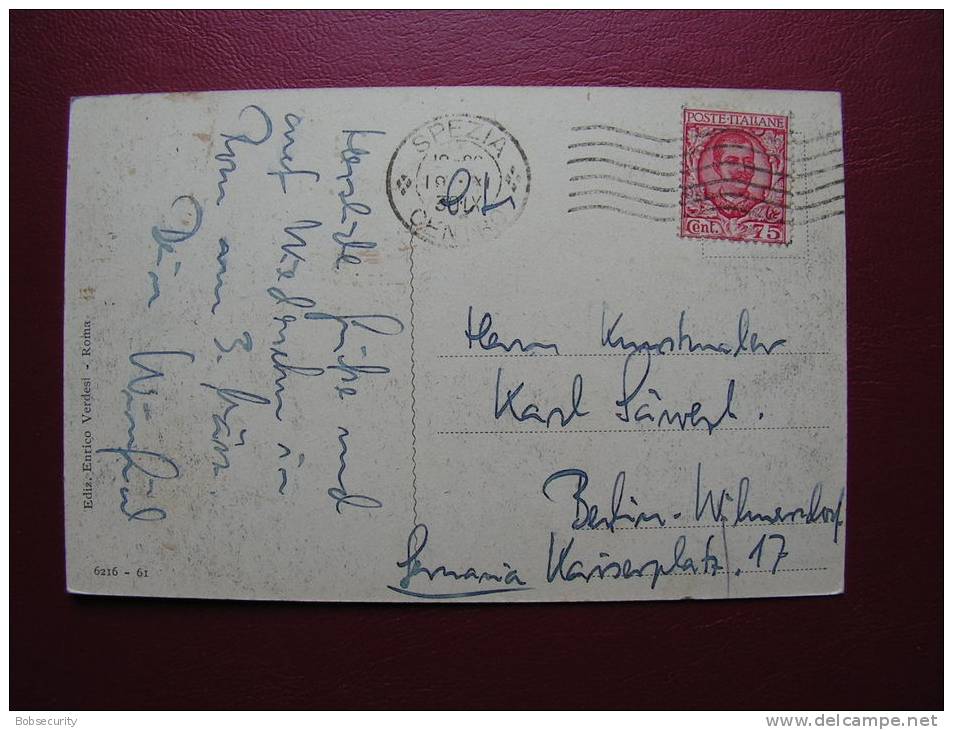 Herzliche Grüße und
auf Wiedersehn in
Rom am 3. März.
Dein
SPEZIA
CENTRO
POSTE·ITALIANE
Cent. 75
Herrn Kunstmaler
Karl
Berlin-Wilmersdorf
Kaiserplatz. 17
Germania
Ediz. Enrico Verdesi - Roma
6216 - 61
Bobsecurity
www.delcampe.net